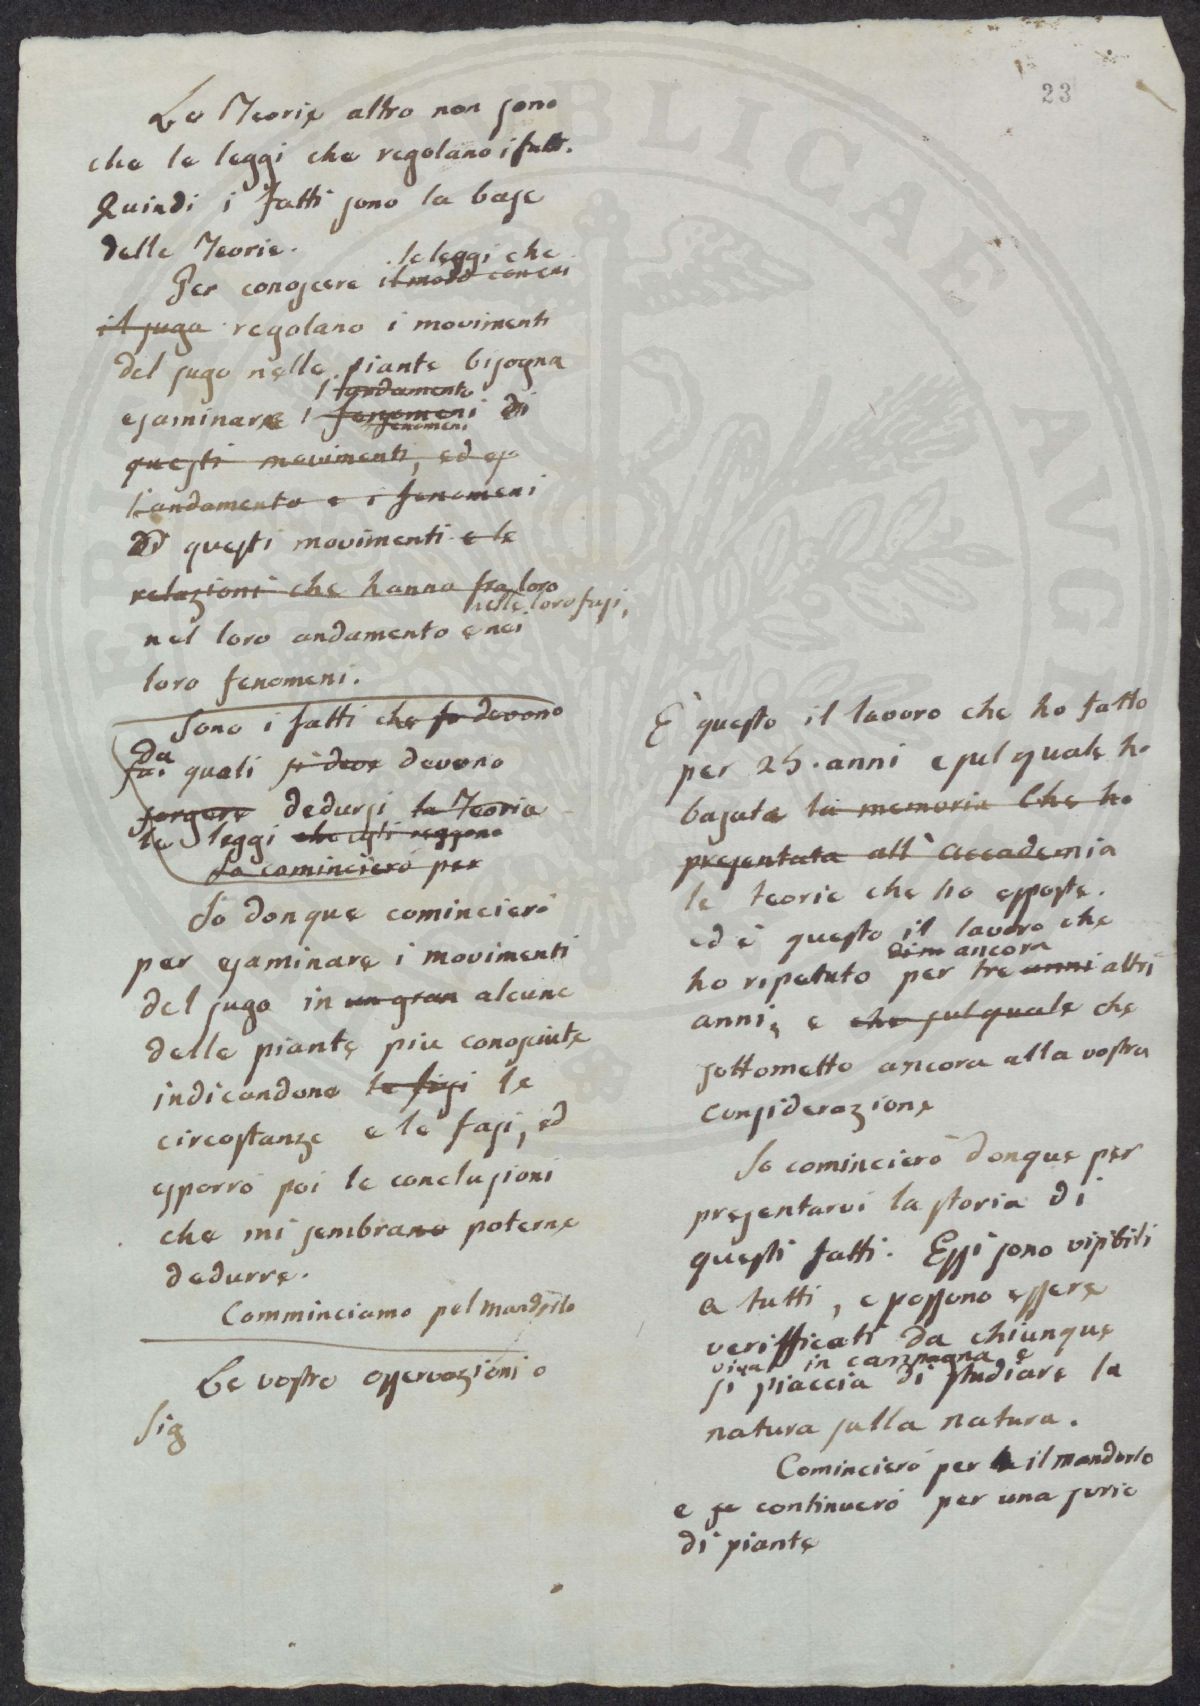 23
Le Teorie altro non sono
che le leggi che regolano i fatti.
Quindi i fatti sono la base
delle Teorie.
le leggi che
Per conoscere il modo con cui
il sugo regolano i movimenti
del sugo nelle piante bisogna
l'andamento
esaminare i fenomeni di
fenomeni
questi movimenti, ed es
l'andamento e i fenomeni
di questi movimenti e le
relazioni che hanno fra loro
nelle loro fasi,
nel loro andamento e nei
loro fenomeni.
Sono i fatti che devono
da
quali si deve devono
sorgere dedursi la Teoria
le leggi che essi reggono
Io comincierò per
Io donque comincierò
per esaminare i movimenti
del sugo in un gran alcune
delle piante piu conosciute
indicandone le fasi le
circostanze e le fasi, ed
esporrò poi le conclusioni
che mi sembrano poterne
dedurre.
Comminciamo pel mandorlo
Le vostre osservazioni o
Sig
È questo il lavoro che ho fatto
per 25. anni e sul quale ho
basate la memoria che ho
presentata all' Accademia
le teorie che ho esposte.
ed è questo il lavoro che
ancora
ho ripetuto per tre anni altri
anni, e che sul quale che
sottometto ancora alla vostra
considerazione
Io comincierò donque per
presentarvi la storia di
questi fatti. Essi sono visibili
a tutti, e possono essere
verifficati da chiunque
viva in campagna e
si piaccia di studiare la
natura sulla natura.
Comincierò per il mandorlo
e se continuerò per una serie
di piante